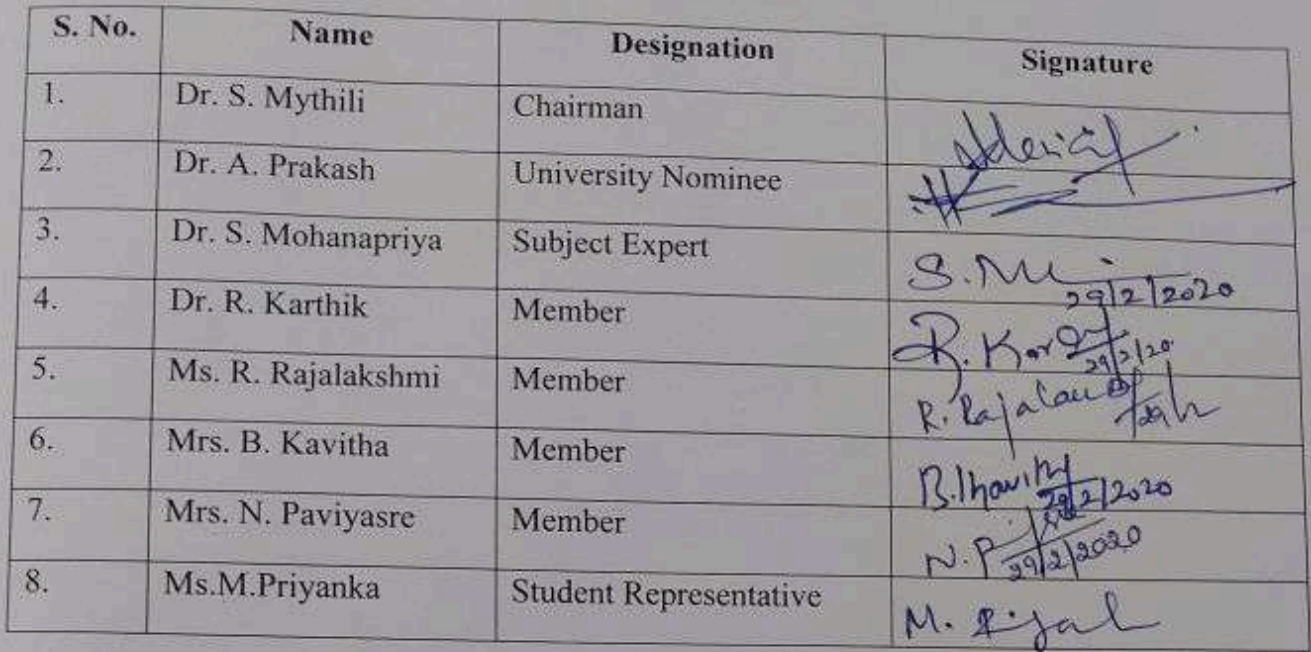 S. No. Name Designation Signature
1. Dr. S. Mythili Chairman
2. Dr. A. Prakash University Nominee
3. Dr. S. Mohanapriya Subject Expert S.
29/2/2020
4. Dr. R. Karthik Member R.
29/2/20
5. Ms. R. Rajalakshmi Member R.
6. Mrs. B. Kavitha Member
29/2/2020
7. Mrs. N. Paviyasre Member N. P
29/2/2020
8. Ms.M.Priyanka Student Representative M.